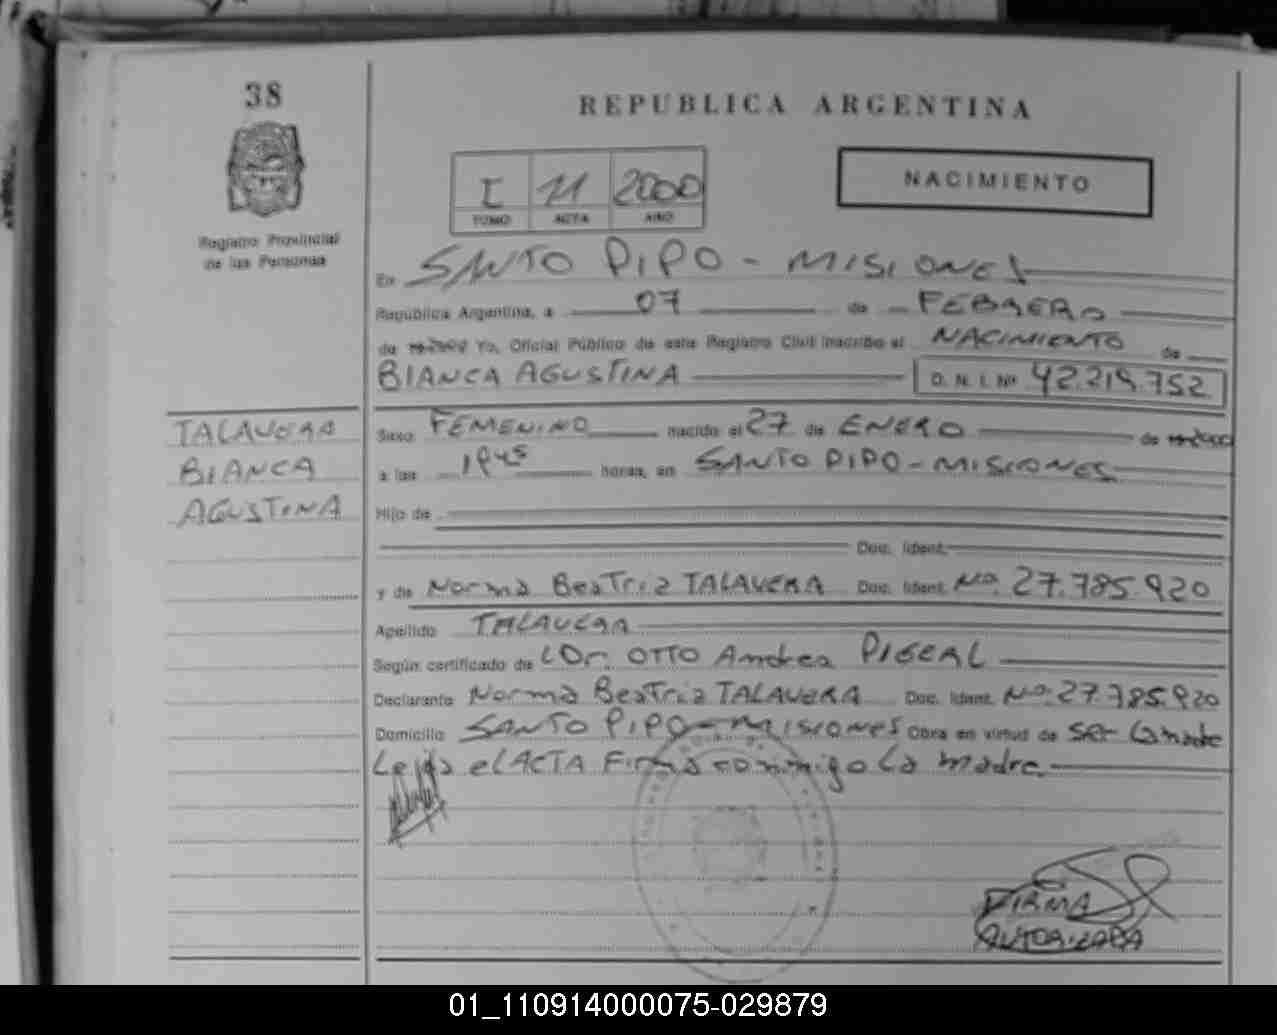 38
REPUBLICA ARGENTINA
I 11 2000
TOMO ACTA AÑO
NACIMIENTO
Registro Provincial
de las Personas
En SANTO PIPO - MISIONES
República Argentina, a 07 de FEBRERO
de 2000 Yo, Oficial Público de este Registro Civil inscribo el NACIMIENTO de
BIANCA AGUSTINA D. N. I. Nº 42.219.752
TALAVERA
BIANCA
AGUSTINA
Sexo FEMENINO nacido el 27 de ENERO de 2000
a las 19 45 horas, en SANTO PIPO - MISIONES
Hijo de
Doc. Ident.
y de Norma Beatriz TALAVERA Doc. Ident. Nº. 27.785.920
Apellido TALAVERA
Según certificado de Dr. OTTO Andres
Declarante Norma Beatriz TALAVERA Doc. Ident. Nº. 27.785.920
Domicilio SANTO PIPO - MISIONES Obra en virtud de ser La madre
Leida el ACTA Firma conmigo La madre.
FIRMA
AUTORIZADA
01_110914000075-029879